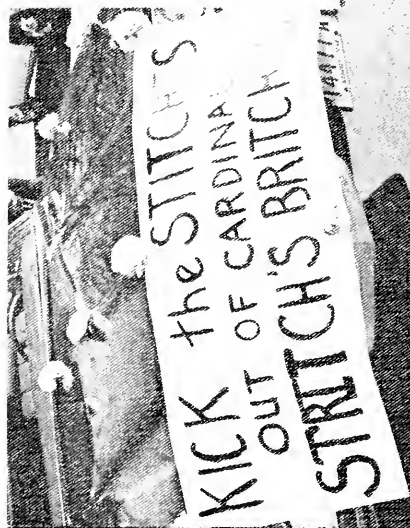 KICK the STITCHES
OUT OF CARDINAL
STRITCH'S BRITCH